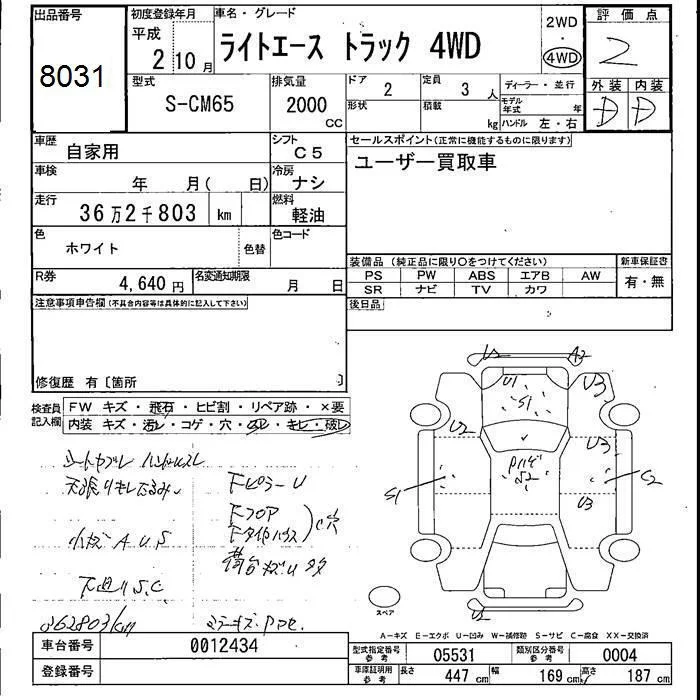 出品番号
8031
初度登録年月
平成
2 10 月
車名・グレード
ライトエース トラック 4WD
2WD
・
4WD
評価点
2
外装 内装
D D
型式
S-CM65
排気量
2000
CC
ドア
2
定員
3 人
ディーラー・並行
形状
積載
kg
モデル年式
年
ハンドル 左・右
車歴
自家用
シフト
C5
車検
年 月( 日)
冷房
ナシ
走行
36万2千803 km
燃料
軽油
色
ホワイト
色替
色コード
R券
4,640 円
名変通知期限
月 日
セールスポイント(正常に機能するものに限ります)
ユーザー買取車
装備品(純正品に限り○をつけてください)
PS PW ABS エアB AW
SR ナビ TV カワ
新車保証書
有・無
後日品
注意事項申告欄(不具合内容等は具体的に記入して下さい)
修復歴 有〔箇所 〕
検査員記入欄
FW キズ・飛石・ヒビ割・リペア跡・×要
内装 キズ・汚レ・コゲ・穴・スレ・キレ・破レ
天張りキレたるみ
Fピラー U
Fフロア
小キズ A.U.S
荷台キズU 多
下廻り S.C
362803km
U2 A2
U1 U3
S1
U2
U3
S1 S2 C2
U3
U2
スペア
A-キズ E-エクボ U-凹み W-補修跡 S-サビ C-腐食 XX-交換済
車台番号
0012434
登録番号
型式指定番号
参考
05531
類別区分番号
参考
0004
車庫証明用
参考
長さ 447 cm 幅 169 cm 高さ 187 cm